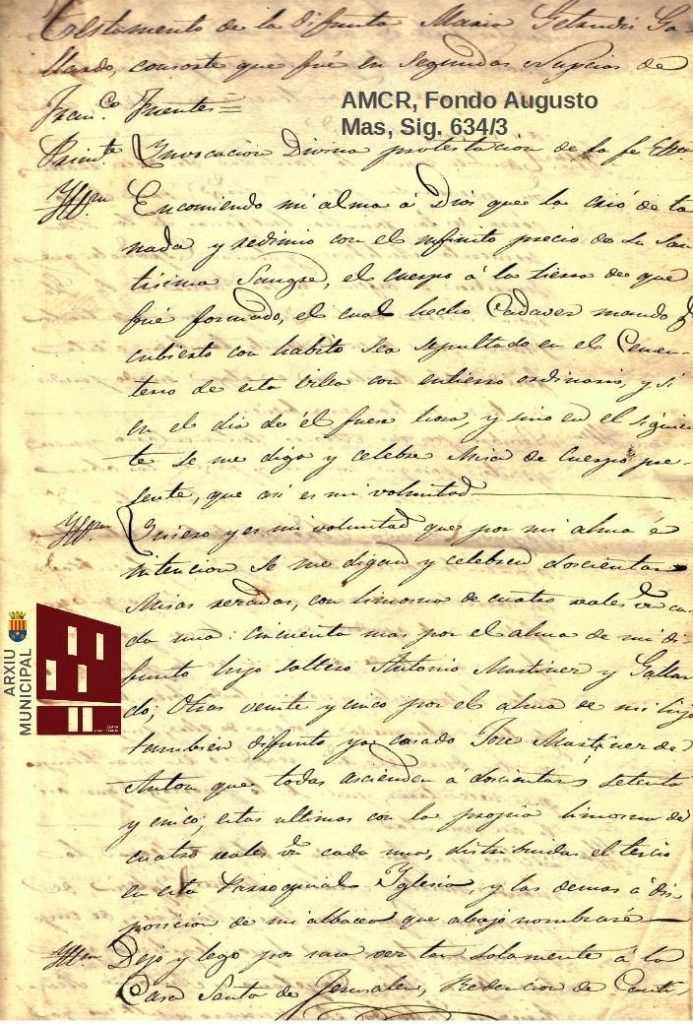 Testamento de la difunta Maria Getrudis Ga-
llardo, consorte que fué en segundas Nupcias de
Fran.co Fuentes=
AMCR, Fondo Augusto
Mas, Sig. 634/3
Primte Ynvocacion Divina protestacion de la fé &a
Encomiendo mi alma á Dios que la crió de la
nada y redimio con el infinito precio de su San
tisima Sangre, el cuerpo á la tierra de que
fué formado, el cual hecho Cadaver mando q
cubierto con habito sea sepultado en el Cemen
terio de esta Villa con entierro ordinario, y si
en el dia de él fuese hora, y sino en el siguien
te se me diga y celebre Misa de Cuerpo pre-
sente, que asi es mi voluntad
Quiero y es mi voluntad que por mi alma é
intencion se me digan y celebren doscientas
Misas rezadas, con limosna de cuatro reales vn ca
da una: cincuenta mas por el alma de mi di
funto hijo soltero Antonio Martinez y Gallar
do; Otras veinte y cinco por el alma de mi hijo
tambien difunto ya casado Jose Martinez de
Anton que todas ascienden á doscientas setenta
y cinco; estas ultimas con la propia limosna de
cuatro reales vn cada una, distribuidas el tercio
en esta Parroquial Yglesia, y las demas á dis
posicion de mi albacea que abajo nombraré
Dejo y lego por una vez tan solamente á la
Casa Santa de Jerusalen, Redencion de Cauti
ARXIU
MUNICIPAL